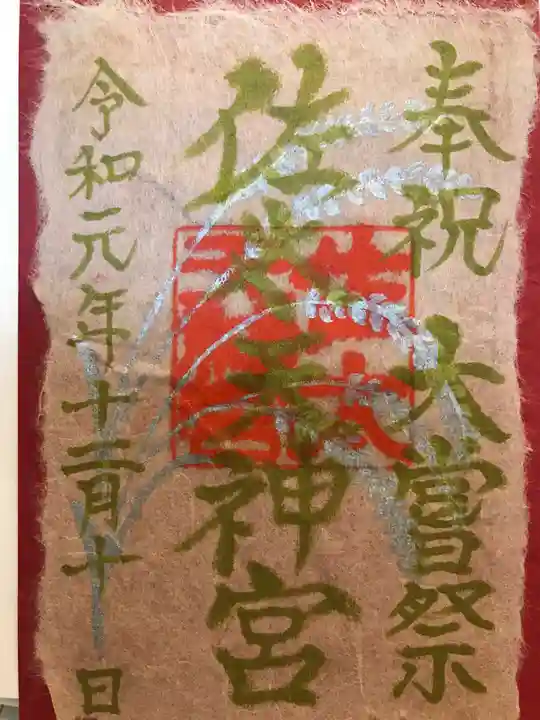 奉祝 大嘗祭
佐太天神宮
令和元年十二月十日